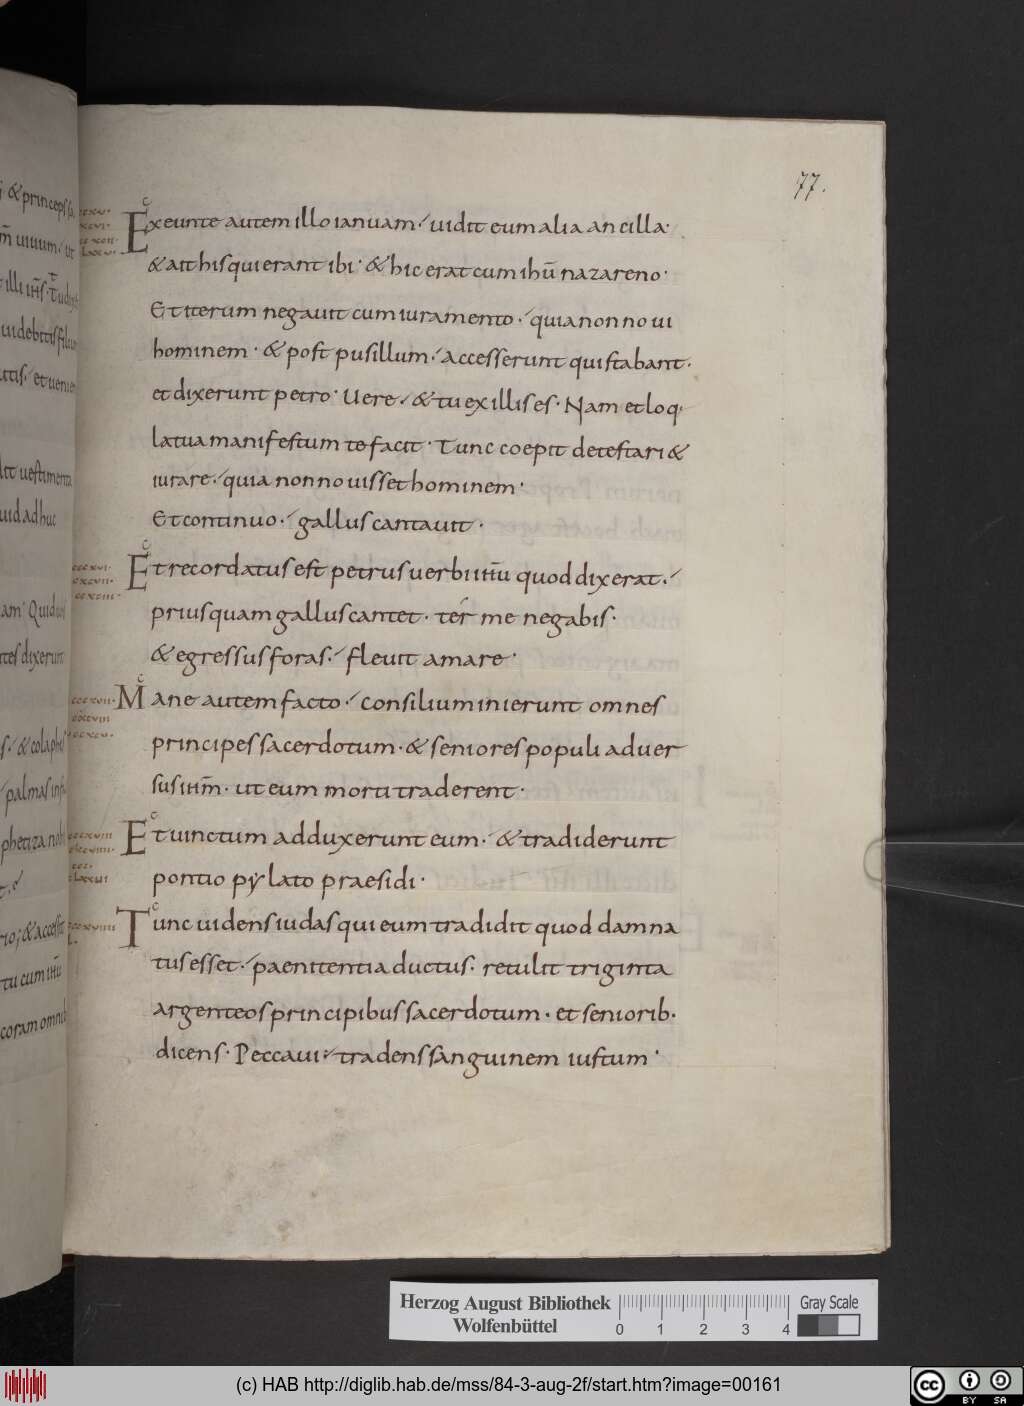 77.
Exeunte autem illo ianuam · uidit eum alia ancilla ·
& ait his qui erant ibi · & hic erat cum ihū nazareno ·
Et iterum negauit cum iuramento · quia non noui
hominem · & post pusillum · accesserunt qui stabant ·
et dixerunt petro · Uere · & tu ex illis es · Nam et loq;
la tua manifestum te facit · Tunc coepit detestari &
iurare · quia non nouisset hominem ·
Et continuo · gallus cantauit ·
Et recordatus est petrus uerbi ihū quod dixerat ·
priusquam gallus cantet · ter me negabis ·
& egressus foras · fleuit amare ·
Mane autem facto · consilium inierunt omnes
principes sacerdotum · & seniores populi aduer
sus ihm̄ · ut eum morti traderent ·
Et uinctum adduxerunt eum · & tradiderunt
pontio pẏlato praesidi ·
Tunc uidens iudas qui eum tradidit quod damna
tus esset · paenitentia ductus · retulit triginta
argenteos principibus sacerdotum · et seniorib ·
dicens · Peccaui · tradens sanguinem iustum ·
Herzog August Bibliothek
Wolfenbüttel
0 1 2 3 4
Gray Scale
(c) HAB http://diglib.hab.de/mss/84-3-aug-2f/start.htm?image=00161
cc BY SA